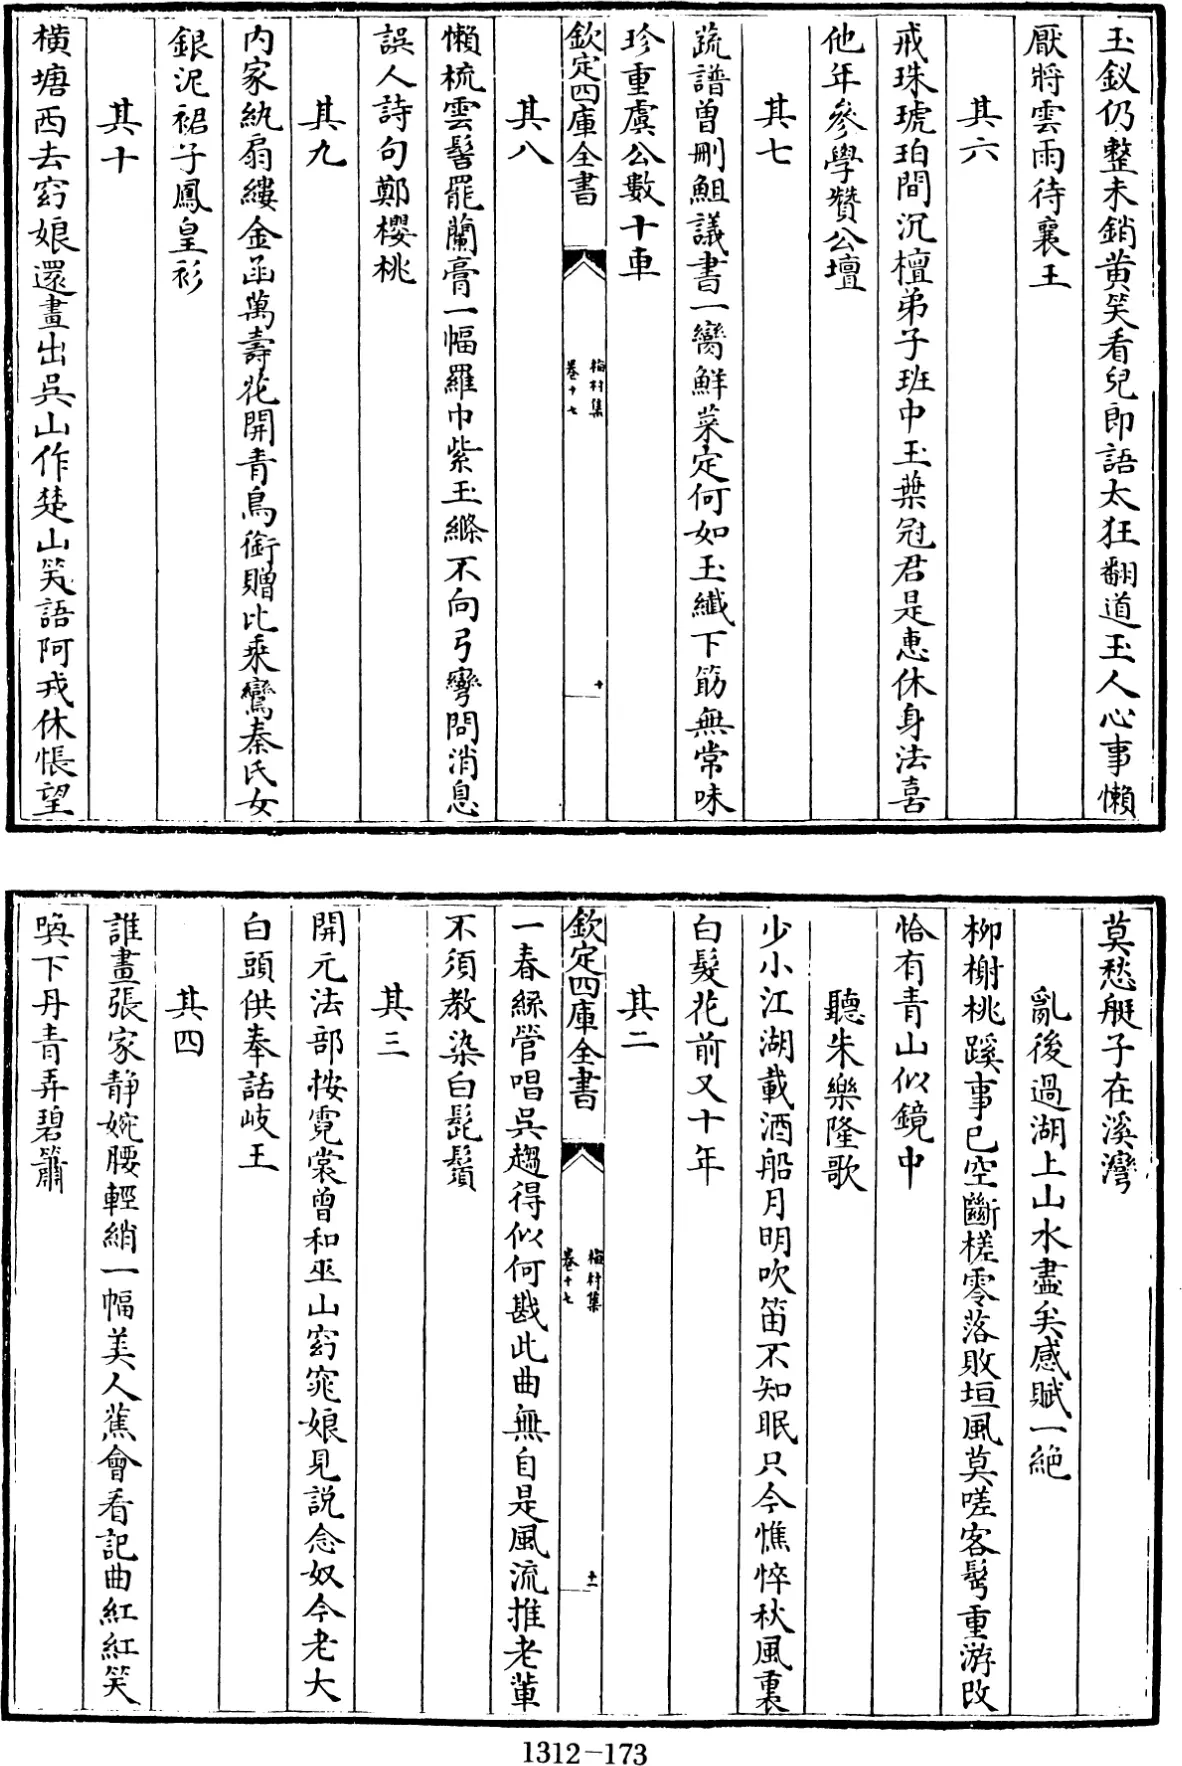 玉釵仍整未銷黄笑看兒郎語太狂翻道玉人心事懶
厭將雲雨待襄王
其六
戒珠琥珀間沉檀弟子班中玉葉冠君是惠休身法喜
他年參學贊公壇
其七
蔬譜曾刪鮓議書一臠鮮菜定何如玉纎下筯無常味
珍重虞公數十車
欽定四庫全書
梅村集
卷十七
十
其八
懶梳雲髻罷蘭膏一幅羅巾紫玉縧不向弓彎問消息
誤人詩句鄭櫻桃
其九
内家紈扇縷金函萬壽花開青鳥銜贈比乗鸞秦氏女
銀泥裙子鳳皇衫
其十
橫塘西去窈娘還畫出吳山作楚山笑語阿戎休悵望
莫愁艇子在溪灣
亂後過湖上山水盡矣感賦一絶
柳榭桃蹊事已空斷槎零落敗垣風莫嗟客鬂重游改
恰有青山似鏡中
聽朱樂隆歌
少小江湖載酒船月明吹笛不知眠只今憔悴秋風裏
白髮花前又十年
其二
一春絲管唱吳趨得似何戡此曲無自是風流推老輩
不須教染白髭鬚
欽定四庫全書
梅村集
卷十七
十一
其三
開元法部按霓裳曾和巫山窈窕娘見説念奴今老大
白頭供奉話岐王
其四
誰畫張家静婉腰輕綃一幅美人蕉會看記曲紅紅笑
喚下丹青弄碧簫
1312-173